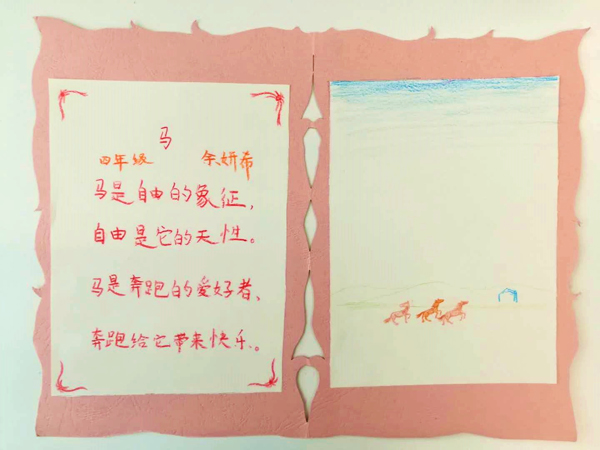 马
四年级 余妍希
马是自由的象征，
自由是它的天性。
马是奔跑的爱好者、
奔跑给它带来快乐。